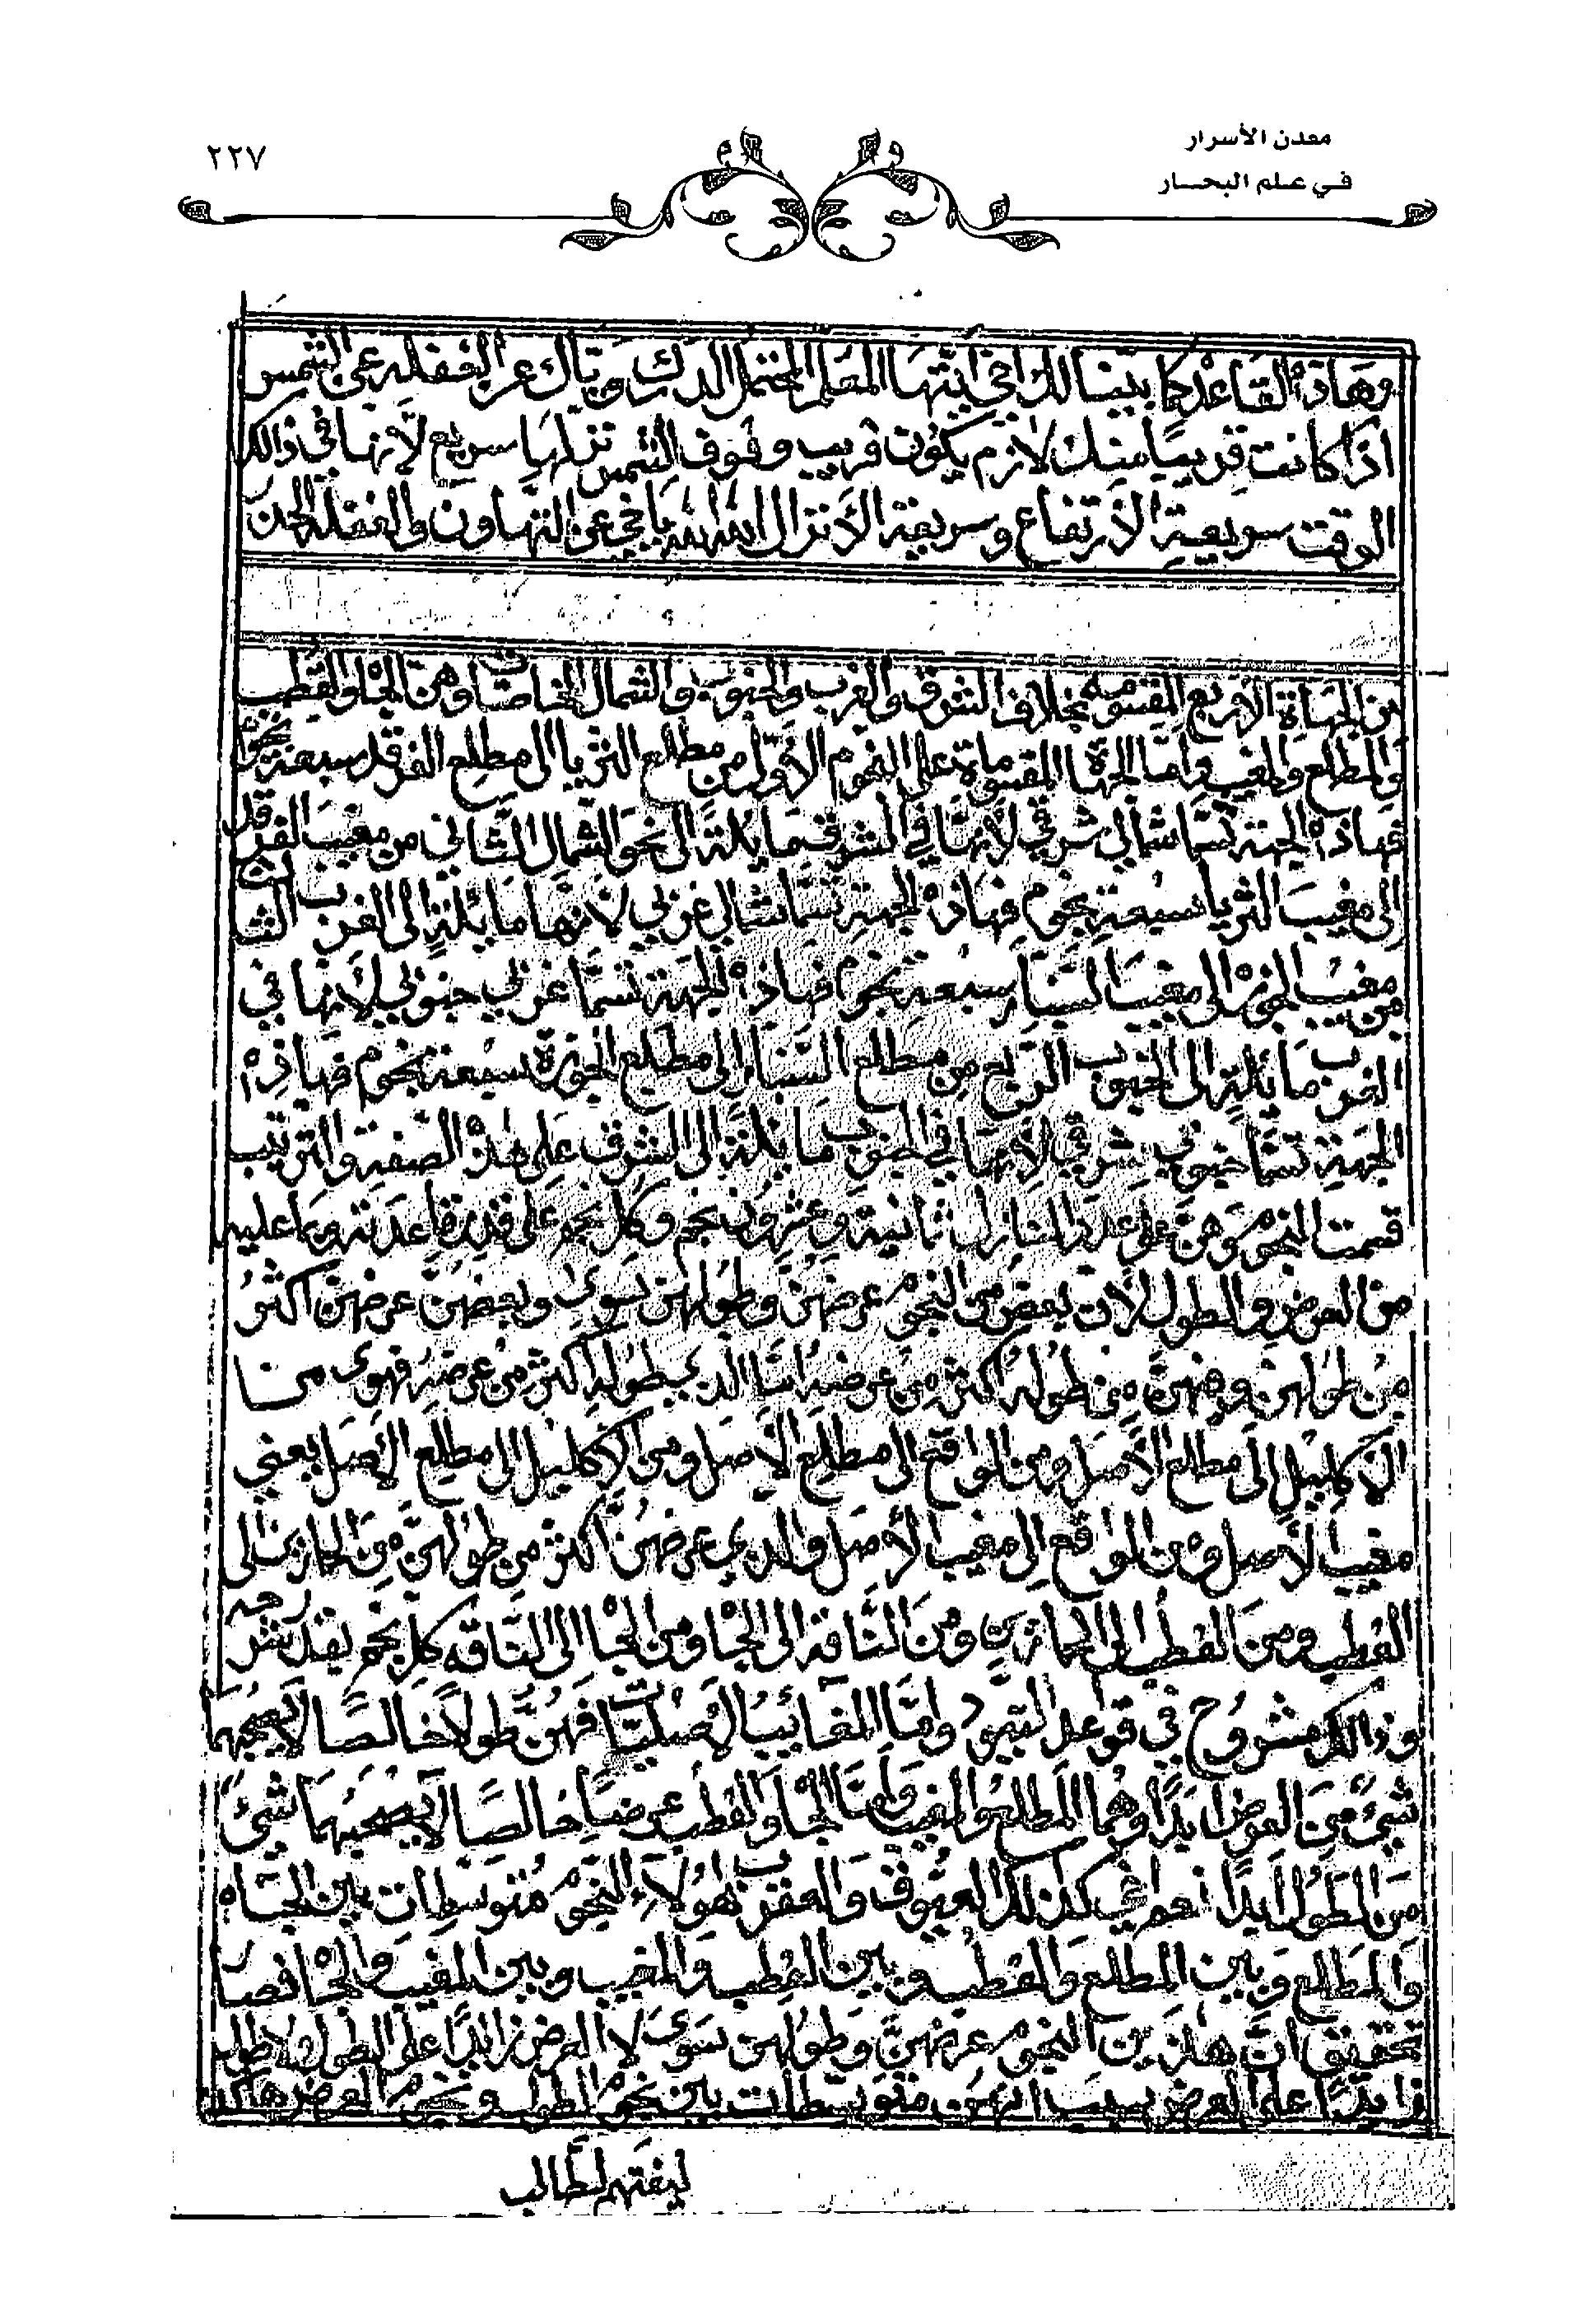 معدن الأسرار
في علم البحار
٢٢٧
وهاذه القاعده كما بينا لك اخي ايتها المعلم المحتمل الدرك وياك عن الغفله عن الشمس
اذا كانت قريبًا منك لازم يكون قريب وفوق الشمس تنزلها سريع لأنها في ذالك
الوقت سريعة الأرتفاع وسريعة الأنزال الله الله يا اخي عن التهاون والغفله الحذر
من الجهاة الأربع المقسومه بخلاف الشرق والغرب والجنوب والشمال الخاصات وهن الجاه والقطب
والمطلع والمغيب واما الجهاة المقسومات على النجوم الأول من مطلع الثريا الى مطلع الفرقد سبعة نجوم
فهاذه الجهة تسما شمالي شرقي لأنها في الشرق مايلة الى نحو الشمال الثاني من مغيب الفرقد
الى مغيب الثريا سبعة نجوم فهاذه الجهة تسما شمالي غربي لأنها مائلة الى الغرب الثالث
من مغيب الجوزه الى مغيب السنبار سبعة نجوم فهاذه الجهة تسما غربي جنوبي لأنها في
الغرب مائلة الى الجنوب الرابع من مطلع السنبار الى مطلع الجوزة سبعة نجوم فهاذه
الجهة تسما جنوبي شرقي لأنها في الجنوب مايلة الى الشرق على هذه الصفة والترتيب
قسمت النجوم وهن على عدد المنازل ثمانية وعشرون نجم وكل نجم على قدر قاعدته وما عليه
من العرض والطول لأن بعض من النجوم عرضهن وطولهن سوى وبعضهن عرضهن اكثر
من طولهن ومنهن من طوله اكثر من عرضه اما الذي طوله اكثر من عرضه فهوى من
الأكليل الى مطلع الأصل ومن الواقع الى مطلع الأصل ومن الأكليل الى مطلع الأصل يعني
مغيب الأصل ومن الواقع الى مغيب الأصل والذي عرضهن اكثر من طولهن من الحمارين الى
القطب ومن القطب الى الحمارين ومن الناقة الى الجاه ومن الجاه الى الناقه كل نجم بقدر شرحه
وذالك مشروح في قواعد التيرى واما المغائيب الأصليات فهن طولاً خالصًا لا يصحبهما
شيءً من العرض ابدًا وهما المطلع والمغيب وأما الجاه والقطب عرضًا خالصًا لا يصحبهما شيئ
من الطول ابدًا نعم اخي كذلك العيوق والعقرب هولاء النجوم متوسطات بين الجاه
والمطلع وبين المطلع والقطب وبين القطب والمغيب وبين المغيب والجاه فصار
تحقيق ان هاذين النجوم عرضهن وطولهن سوى لا العرض زايدًا على الطول ولا الطول
زايدًا على العرض بسبب انهن متوسطات بين نجوم الطول ونجوم العرض هاكذا
ليفتهم لطالب